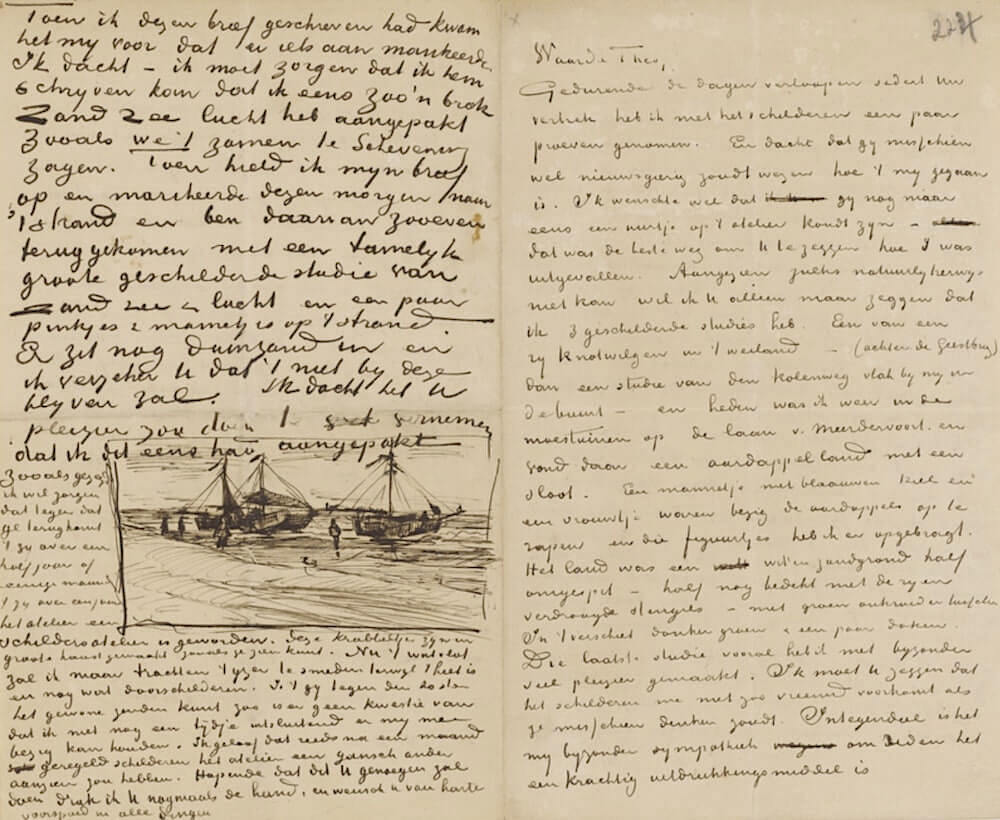 Toen ik dezen brief geschreven had kwam
het my voor dat er iets aan mankeerde
Ik dacht – ik moet zorgen dat ik hem
schryven kan dat ik eens zoo'n brok
Zand Zee lucht heb aangepakt
zooals we't zamen te Schevening
zagen. Toen hield ik myn brief
op en marcheerde dezen morgen naar
't strand en ben daarvan zooeven
teruggekomen met een tamelyk
groote geschilderde studie van
Zand zee & lucht en een paar
pinkjes & mannetjes op 't strand.
Er zit nog duinzand in en
ik verzeker U dat 't niet by deze
blyven zal. Ik dacht het U
plezier zou doen te vernemen
dat ik dit eens had aangepakt
zooals gezegd
ik wil zorgen
dat tegen dat
gy terugkomt
't zy over een
half jaar of
eenige maand
't zy over een jaar
het atelier een
schildersatelier is geworden. Deze krabbeltjes zyn in
groote haast gemaakt zooals ge zien kunt. Nu 't vlot
zal ik maar trachten 't yzer te smeden terwyl 't heet is
en nog wat doorschilderen. Is 't gy tegen den 20sten
het gewone zenden kunt zoo is er geen kwestie van
dat ik niet nog een tydje uitsluitend er my mee
bezig kan houden. Ik geloof dat reeds na een maand
geregeld schilderen het atelier een gansch ander
aanzien zou hebben. Hopende dat dit U genoegen zal
doen druk ik U nogmaals de hand, en wensch U van harte
voorspoed in alle dingen
224
Waarde Theo,
Gedurende de dagen verloopen sedert uw
vertrek heb ik met het schilderen een paar
proeven genomen. En dacht dat gy misschien
wel nieuwsgierig zoudt wezen hoe 't my gegaan
is. Ik wenschte wel dat gy nog maar
eens een uurtje op 't atelier kondt zyn –
dat was de beste weg om U te zeggen hoe 't was
uitgevallen. Aangezien zulks natuurlykerwys
niet kan wil ik U alleen maar zeggen dat
ik 3 geschilderde studies heb. Een van een
ry knotwilgen in 't weiland – (achter de Geestbrug)
dan een studie van den Kolenweg vlak by my in
de buurt – en heden was ik weer in de
moestuinen op de laan v. Meerdervoort en
vond daar een aardappelland met een
sloot. Een mannetje met blaauwen kiel en
een vrouwtje waren bezig de aardappels op te
rapen en die figuurtjes heb ik er opgebragt.
Het land was een wit'en zandgrond half
omgespit – half nog bedekt met de ryen
verdroogde stengels – met groen onkruid er tusschen
In 't verschiet donker groen & een paar daken.
Die laatste studie vooral heb ik met byzonder
veel plezier gemaakt. Ik moet U zeggen dat
het schilderen me niet zoo vreemd voorkomt als
ge misschien denken zoudt. Integendeel is het
my byzonder sympathiek om reden het
een krachtig uitdrukkingsmiddel is